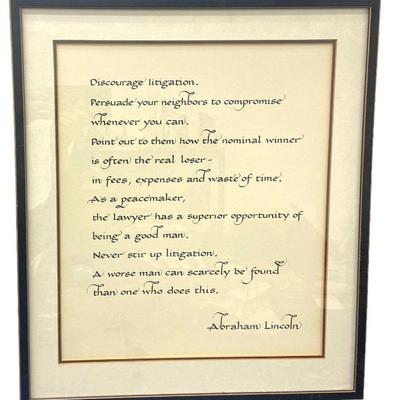 Discourage litigation.
Persuade your neighbors to compromise
whenever you can.
Point out to them how the nominal winner
is often the real loser-
in fees, expenses and waste of time.
As a peacemaker,
the lawyer has a superior opportunity of
being a good man.
Never stir up litigation.
A worse man can scarcely be found
than one who does this.
Abraham Lincoln